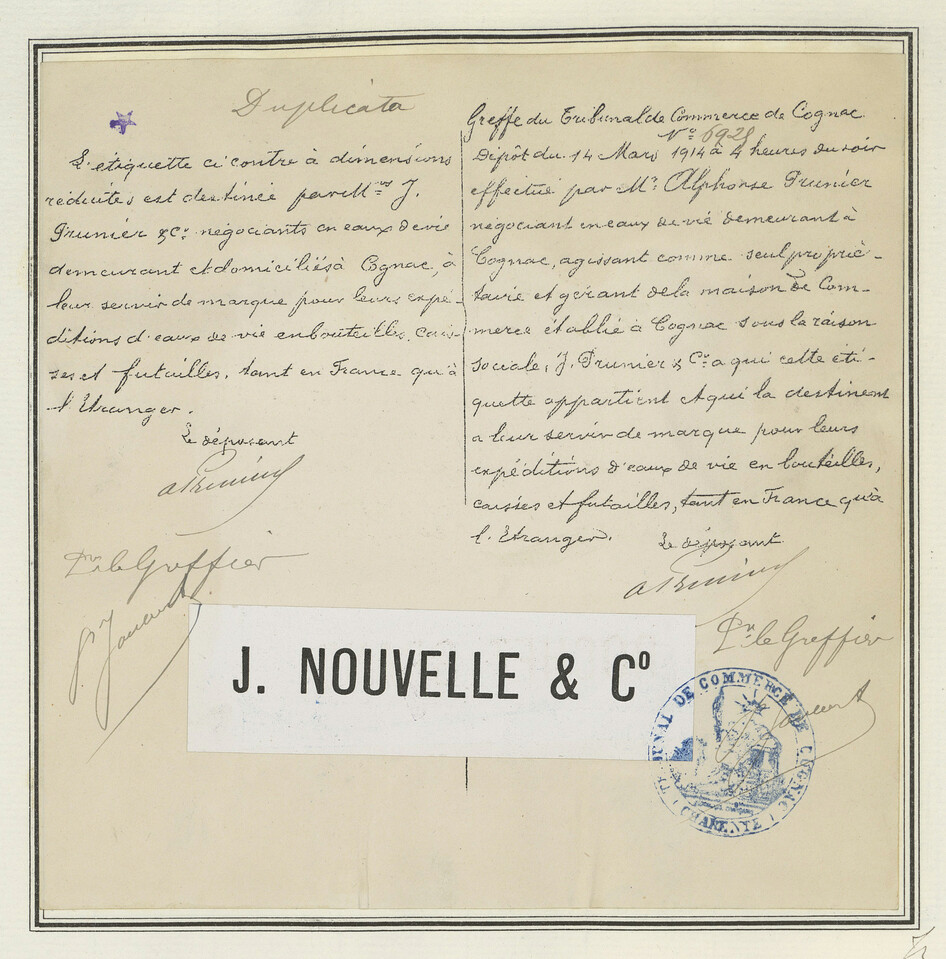 Duplicata
L'étiquette ci contre à dimensions
réduites est destinée par M.rs J.
Prunier & Cie négociants en eaux de vie
demeurant et domiciliés à Cognac, à
leur servir de marque pour leurs expé-
ditions d'eaux de vie en bouteilles, cais-
ses et futailles, tant en France qu'à
l'Etranger.
Le déposant
APrunier
Pr le Greffier
Greffe du Tribunal de Commerce de Cognac
No 6928
Dépôt du 14 Mars 1914 à 4 heures du soir
effectué par Mr. Alphonse Prunier
négociant en eaux de vie demeurant à
Cognac, agissant comme seul proprié-
taire et gérant de la maison de Com-
merce établie à Cognac sous la raison
sociale, J. Prunier & Cie a qui cette éti-
quette appartient et qui la destinent
a leur servir de marque pour leurs
expéditions d'eaux de vie en bouteilles,
caisses et futailles, tant en France qu'à
l'Etranger.
Le déposant
APrunier
Pr le Greffier
J. NOUVELLE & Co
TRIBUNAL DE COMMERCE DE COGNAC
(CHARENTE)